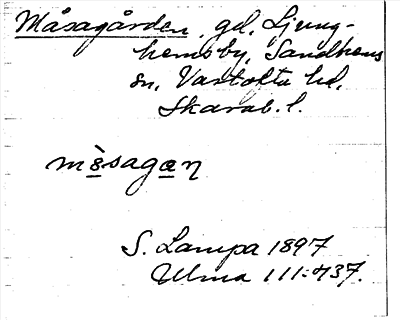 Måsagården, gd, Ljung-
hems by, Sandhems
sn, Vartofta hd,
Skarab. l.
mòsagan
S. Lampa 1897
Ulma 111:437.